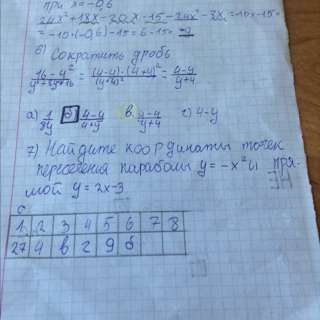 при x=-0,6
24x²+18x-20x-15-24x²-8x=-10x-15=
=-10·(-0,6)-15=6-15=-9
6) Сократить дробь
16-y²/y²+8y+16=(4-y)·(4+y)/(4+y)²=4-y/y+4
а) 1/8y б) 4-y/4+y в. y-4/y+4 г) 4-y
7) Найдите координаты точек
пересечения параболы y=-x² и пря-
мой y=2x-3
С
1 2 3 4 5 6 7 8
27 4 в г 9 б